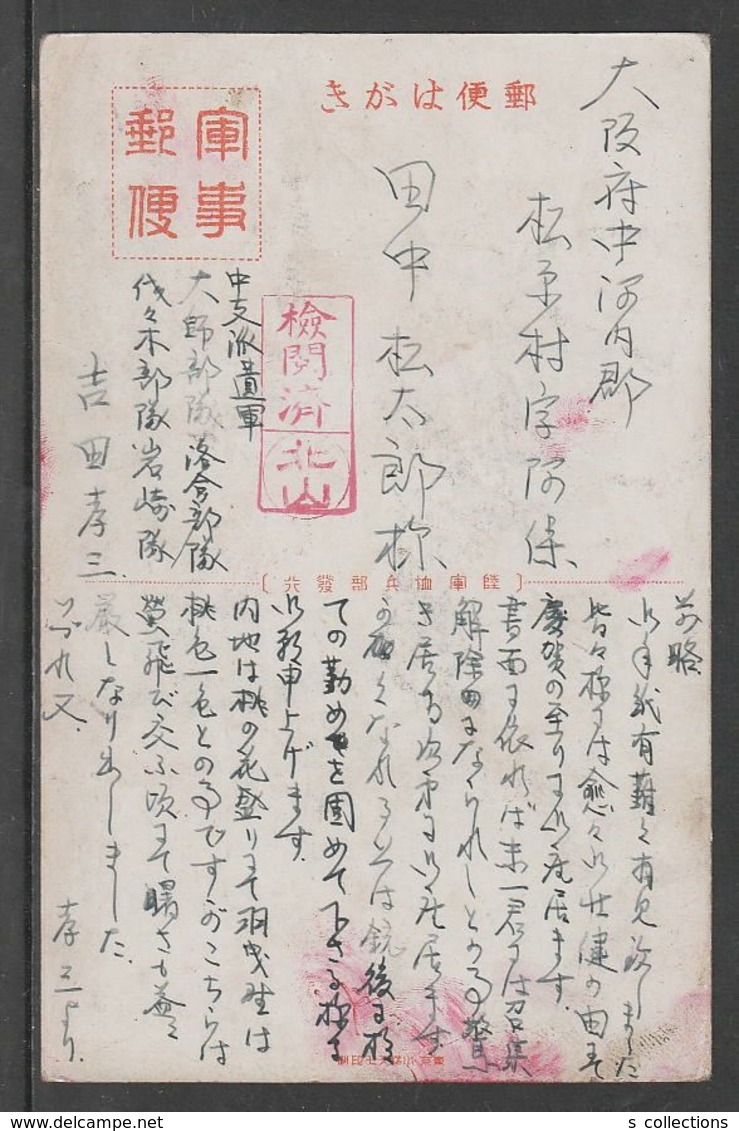 郵便はがき
軍事
郵便
大阪府中河内郡
松原村字阿保
田中松太郎様
検閲済
北山
中支派遣軍
大師部隊落合部隊
代々木部隊岩崎隊
吉田孝三
陸軍恤兵部發行
前略
御手紙有難く有見致しました
皆々様には愈々御壮健の由にて
慶賀の至りに御座居ます
書面に依れば末一君には召集
解除になられしとの事驚
き居る次第に御座居ます
なれる上は銃後に於
ての勤めを固めて下さる様に
御願申上げます
内地は桃の花盛りにて羽曳野は
桃色一色との事ですがこちらは
螢飛び交ふ頃にて暑さも益々
厳しなり出しました
いづれ又
孝三より
s collections